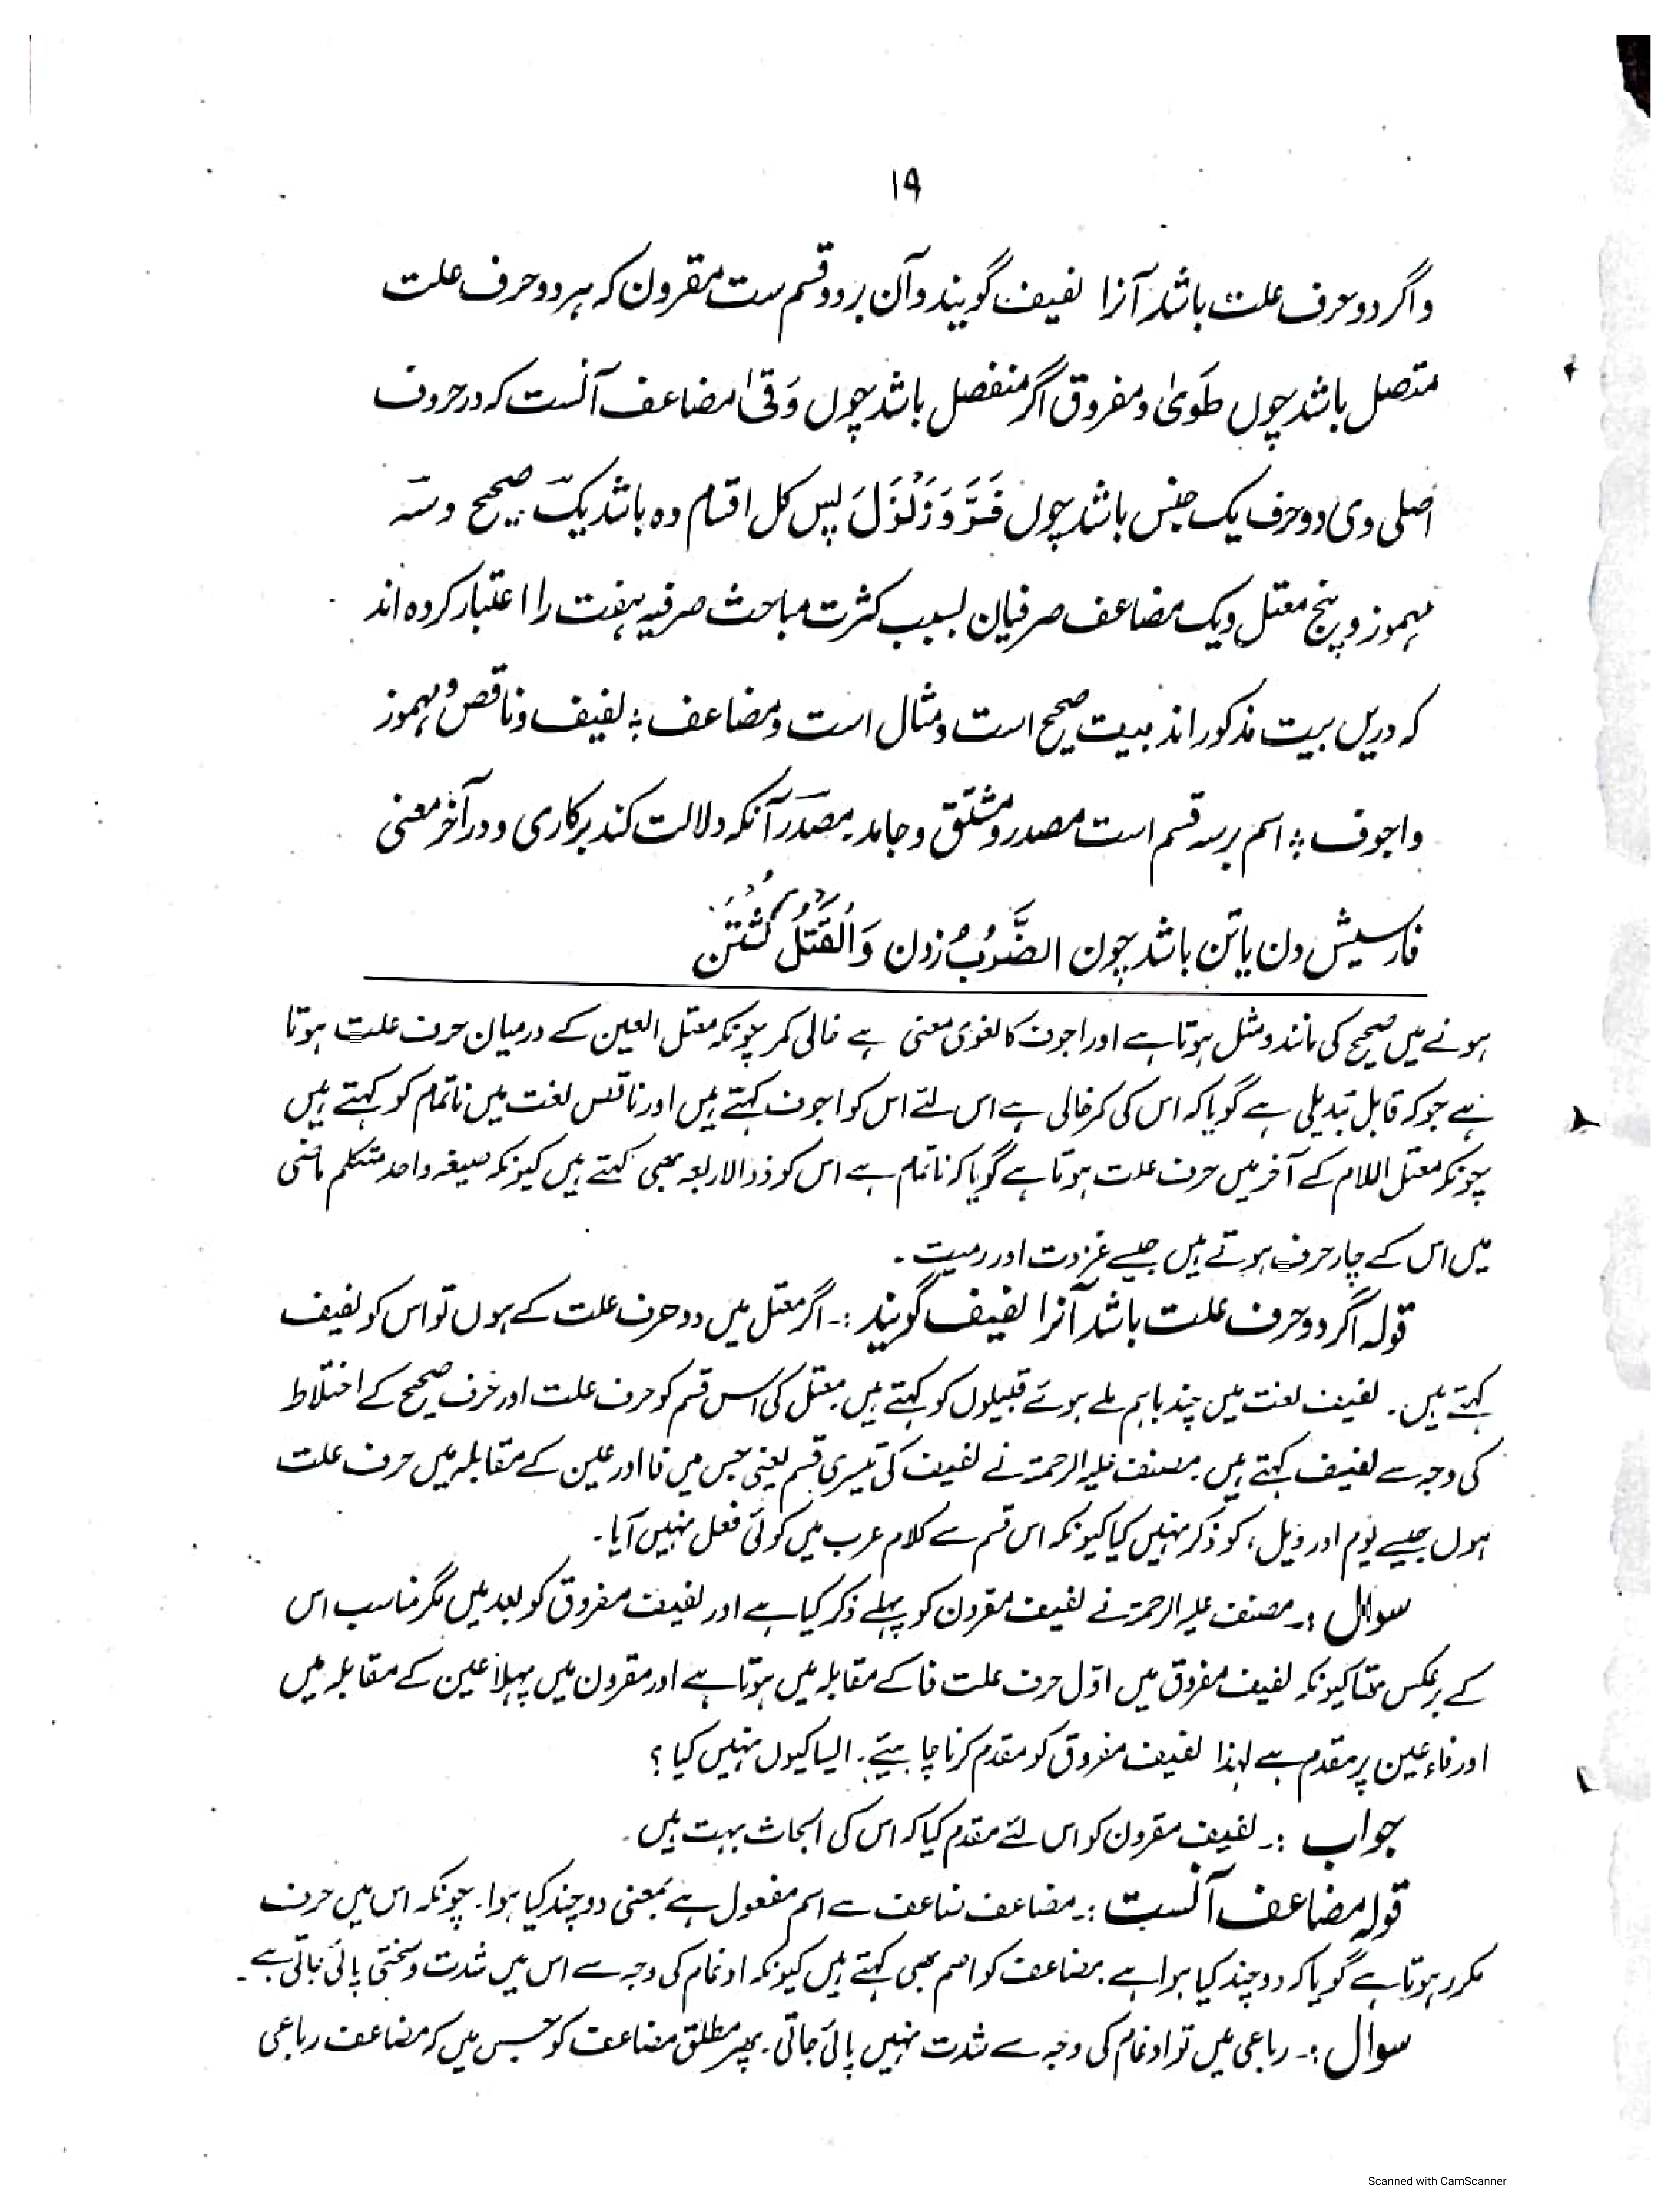 ۱۹
واگر دو حرف علت باشد آنرا لفیف گویند وآن بر دو قسم ست مقرون که هر دو حرف علت
متصل باشد چوں طَویٰ ومفروق اگر منفصل باشد چوں وَقیٰ مضاعف آنست که در حروف
اصلی وی دو حرف یک جنس باشد چوں فَرَّ وَزَلْزَلَ پس کل اقسام ده باشد یک صحیح وسه
مهموز و پنج معتل ویک مضاعف صرفیان بسبب کثرت مباحث صرفیه هفت را اعتبار کرده اند
که دریں بیت مذکور اند بیت صحیح است ومثال است ومضاعف ؞ لفیف وناقص ومهموز
واجوف ؞ اسم بر سه قسم است مصدر ومشتق وجامد۔ مصدر آنکه دلالت کند بر کاری ودر آخر معنی
فارسیش دن یا تن باشد چون الضَّرْبُ زدن وَالْقَتْلُ کُشْتَن
ہونے میں صحیح کی مانند ومثل ہوتا ہے اور اجوف کا لغوی معنی ہے خالی کمر چونکہ معتل العین کے درمیان حرف علت ہوتا
ہے جو کہ قابل تبدیلی ہے گویا کہ اس کی کمر خالی ہے اس لئے اس کو اجوف کہتے ہیں اور ناقص لغت میں ناتمام کو کہتے ہیں
چونکہ معتل اللام کے آخر میں حرف علت ہوتا ہے گویا کہ ناتمام ہے اس کو ذوالاربعہ بھی کہتے ہیں کیونکہ صیغہ واحد متکلم ماضی
میں اس کے چار حرف ہوتے ہیں جیسے غزوت اور رمیت۔
قولہ اگر دو حرف علت باشد آنرا لفیف گویند :۔ اگر معتل میں دو حرف علت کے ہوں تو اس کو لفیف
کہتے ہیں۔ لفیف لغت میں چند باہم ملے ہوئے قبیلوں کو کہتے ہیں۔ معتل کی اس قسم کو حرف علت اور حرف صحیح کے اختلاط
کی وجہ سے لفیف کہتے ہیں۔ مصنف علیہ الرحمۃ نے لفیف کی تیسری قسم یعنی جس میں فا اور عین کے مقابلہ میں حرف علت
ہوں جیسے یوم اور ویل، کو ذکر نہیں کیا کیونکہ اس قسم سے کلام عرب میں کوئی فعل نہیں آیا۔
سوال :۔ مصنف علیہ الرحمۃ نے لفیف مقرون کو پہلے ذکر کیا ہے اور لفیف مفروق کو بعد میں مگر مناسب اس
کے برعکس تھا کیونکہ لفیف مفروق میں اوّل حرف علت فا کے مقابلہ میں ہوتا ہے اور مقرون میں پہلا عین کے مقابلہ میں
اور فاء عین پر مقدم ہے لہذا لفیف مفروق کو مقدم کرنا چاہیئے۔ ایسا کیوں نہیں کیا ؟
جواب :۔ لفیف مقرون کو اس لئے مقدم کیا کہ اس کی ابحاث بہت ہیں۔
قولہ مضاعف آنست :۔ مضاعف ضاعف سے اسم مفعول ہے بمعنی دو چند کیا ہوا۔ چونکہ اس میں حرف
مکرر ہوتا ہے گویا کہ دو چند کیا ہوا ہے۔ مضاعف کو اصم بھی کہتے ہیں کیونکہ ادغام کی وجہ سے اس میں شدت وسختی پائی جاتی ہے۔
سوال :۔ رباعی میں تو ادغام کی وجہ سے شدت نہیں پائی جاتی۔ پھر مطلق مضاعف کو جس میں کہ مضاعف رباعی
Scanned with CamScanner